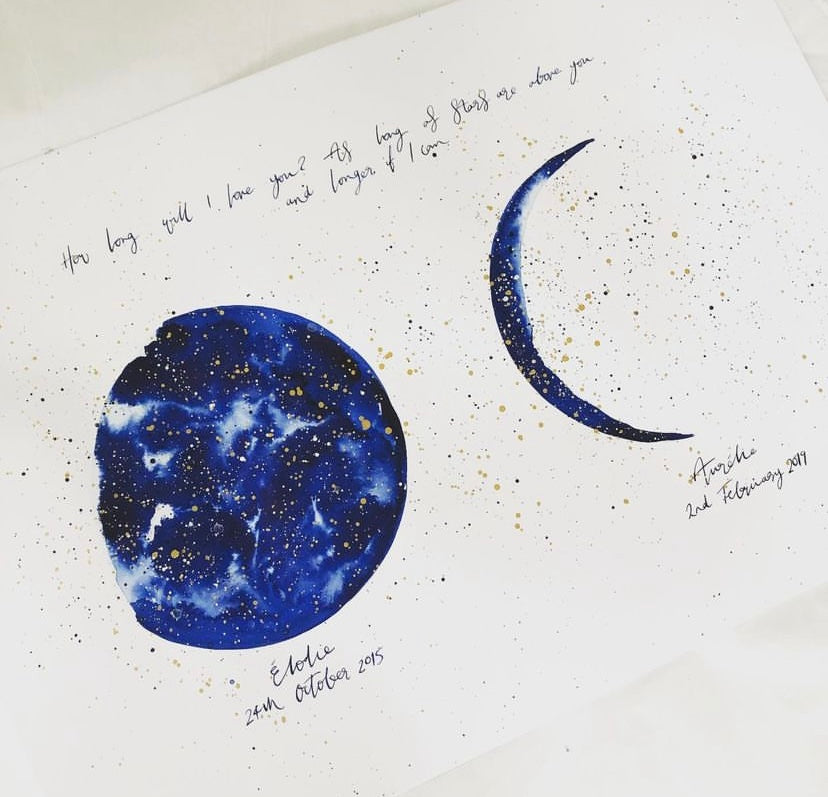 How long will I love you? As long as stars are above you
and longer if I can
Aurélie
2nd February 2019
Élodie
24th October 2015